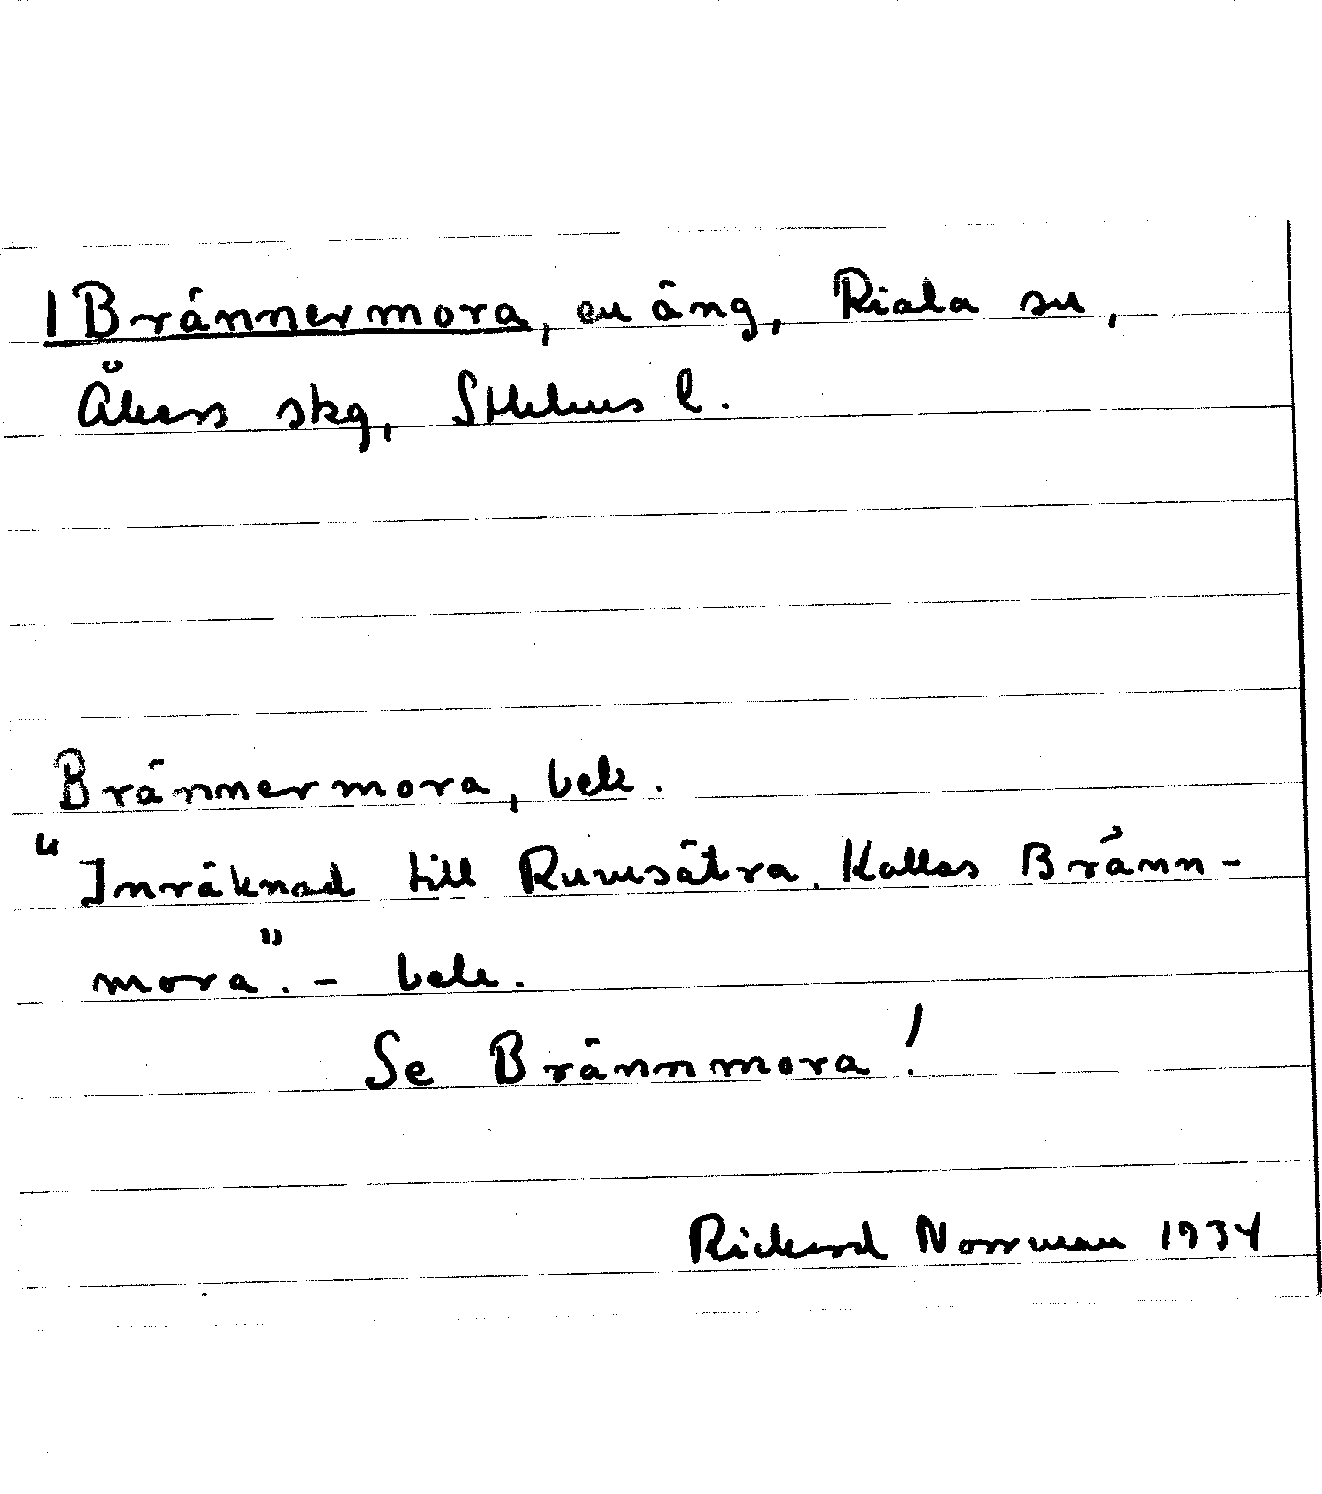 1 Brännermora, en äng, Riala sn,
Åkers skg, Sthlms l.
Brännermora, bek.
"Inräknad till Rumsätra. Kallas Bränn-
mora". - bek.
Se Brännmora!
Rickard Norrman 1934